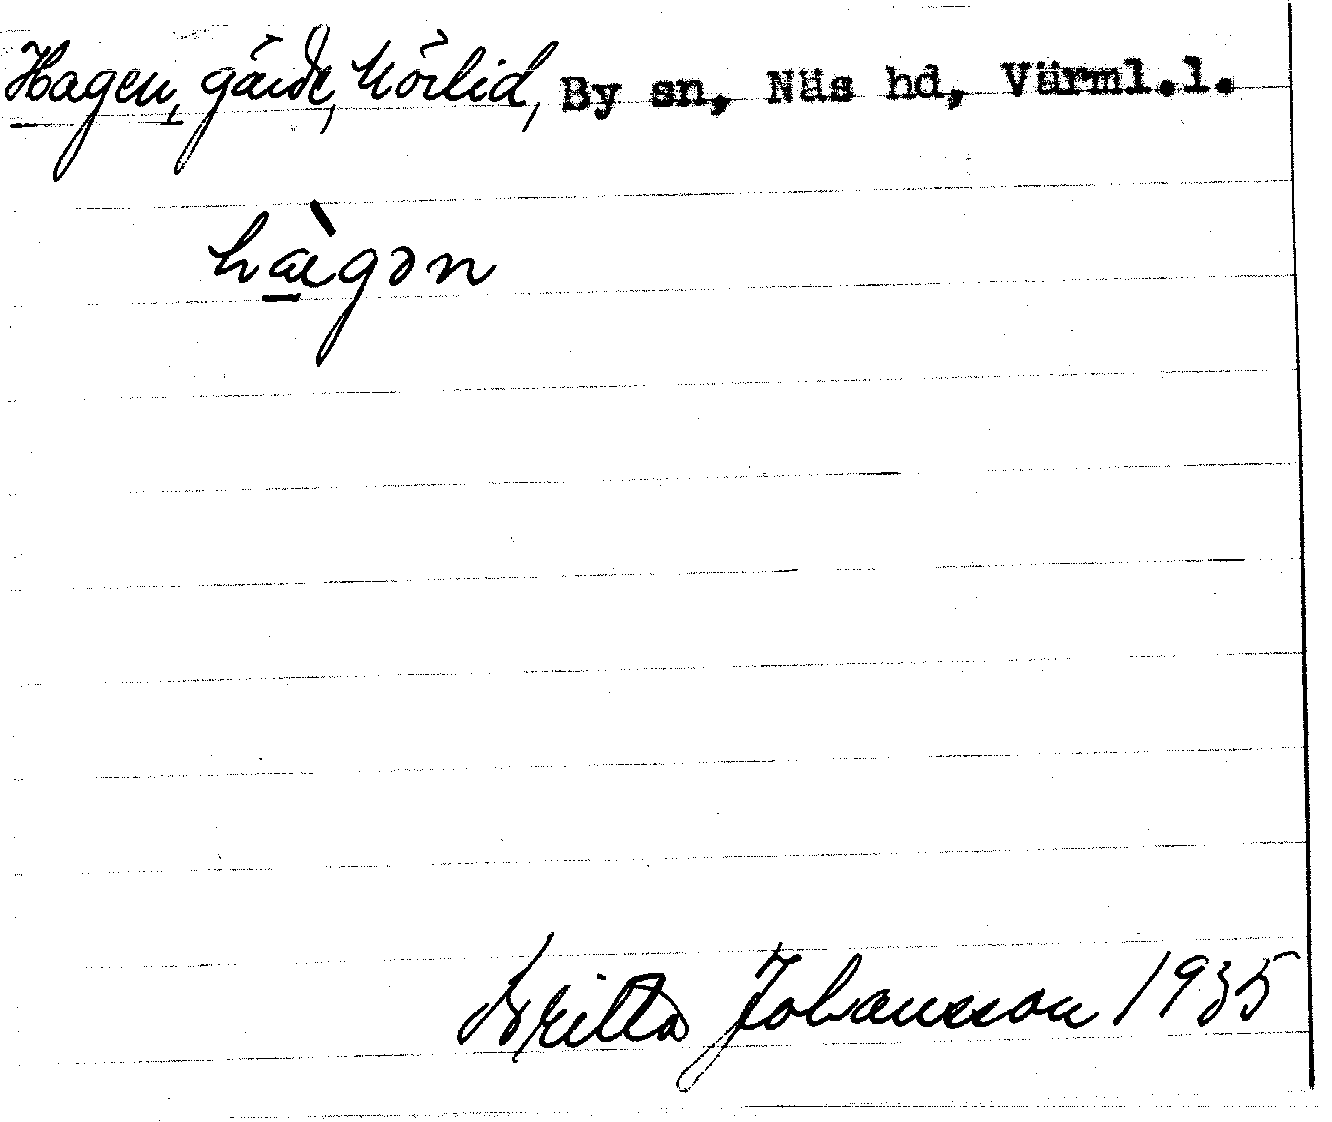 Hagen, gärde, Nörlid, By sn, Näs hd, Värml.l.
hæ̀gən
Britta Johansson 1935